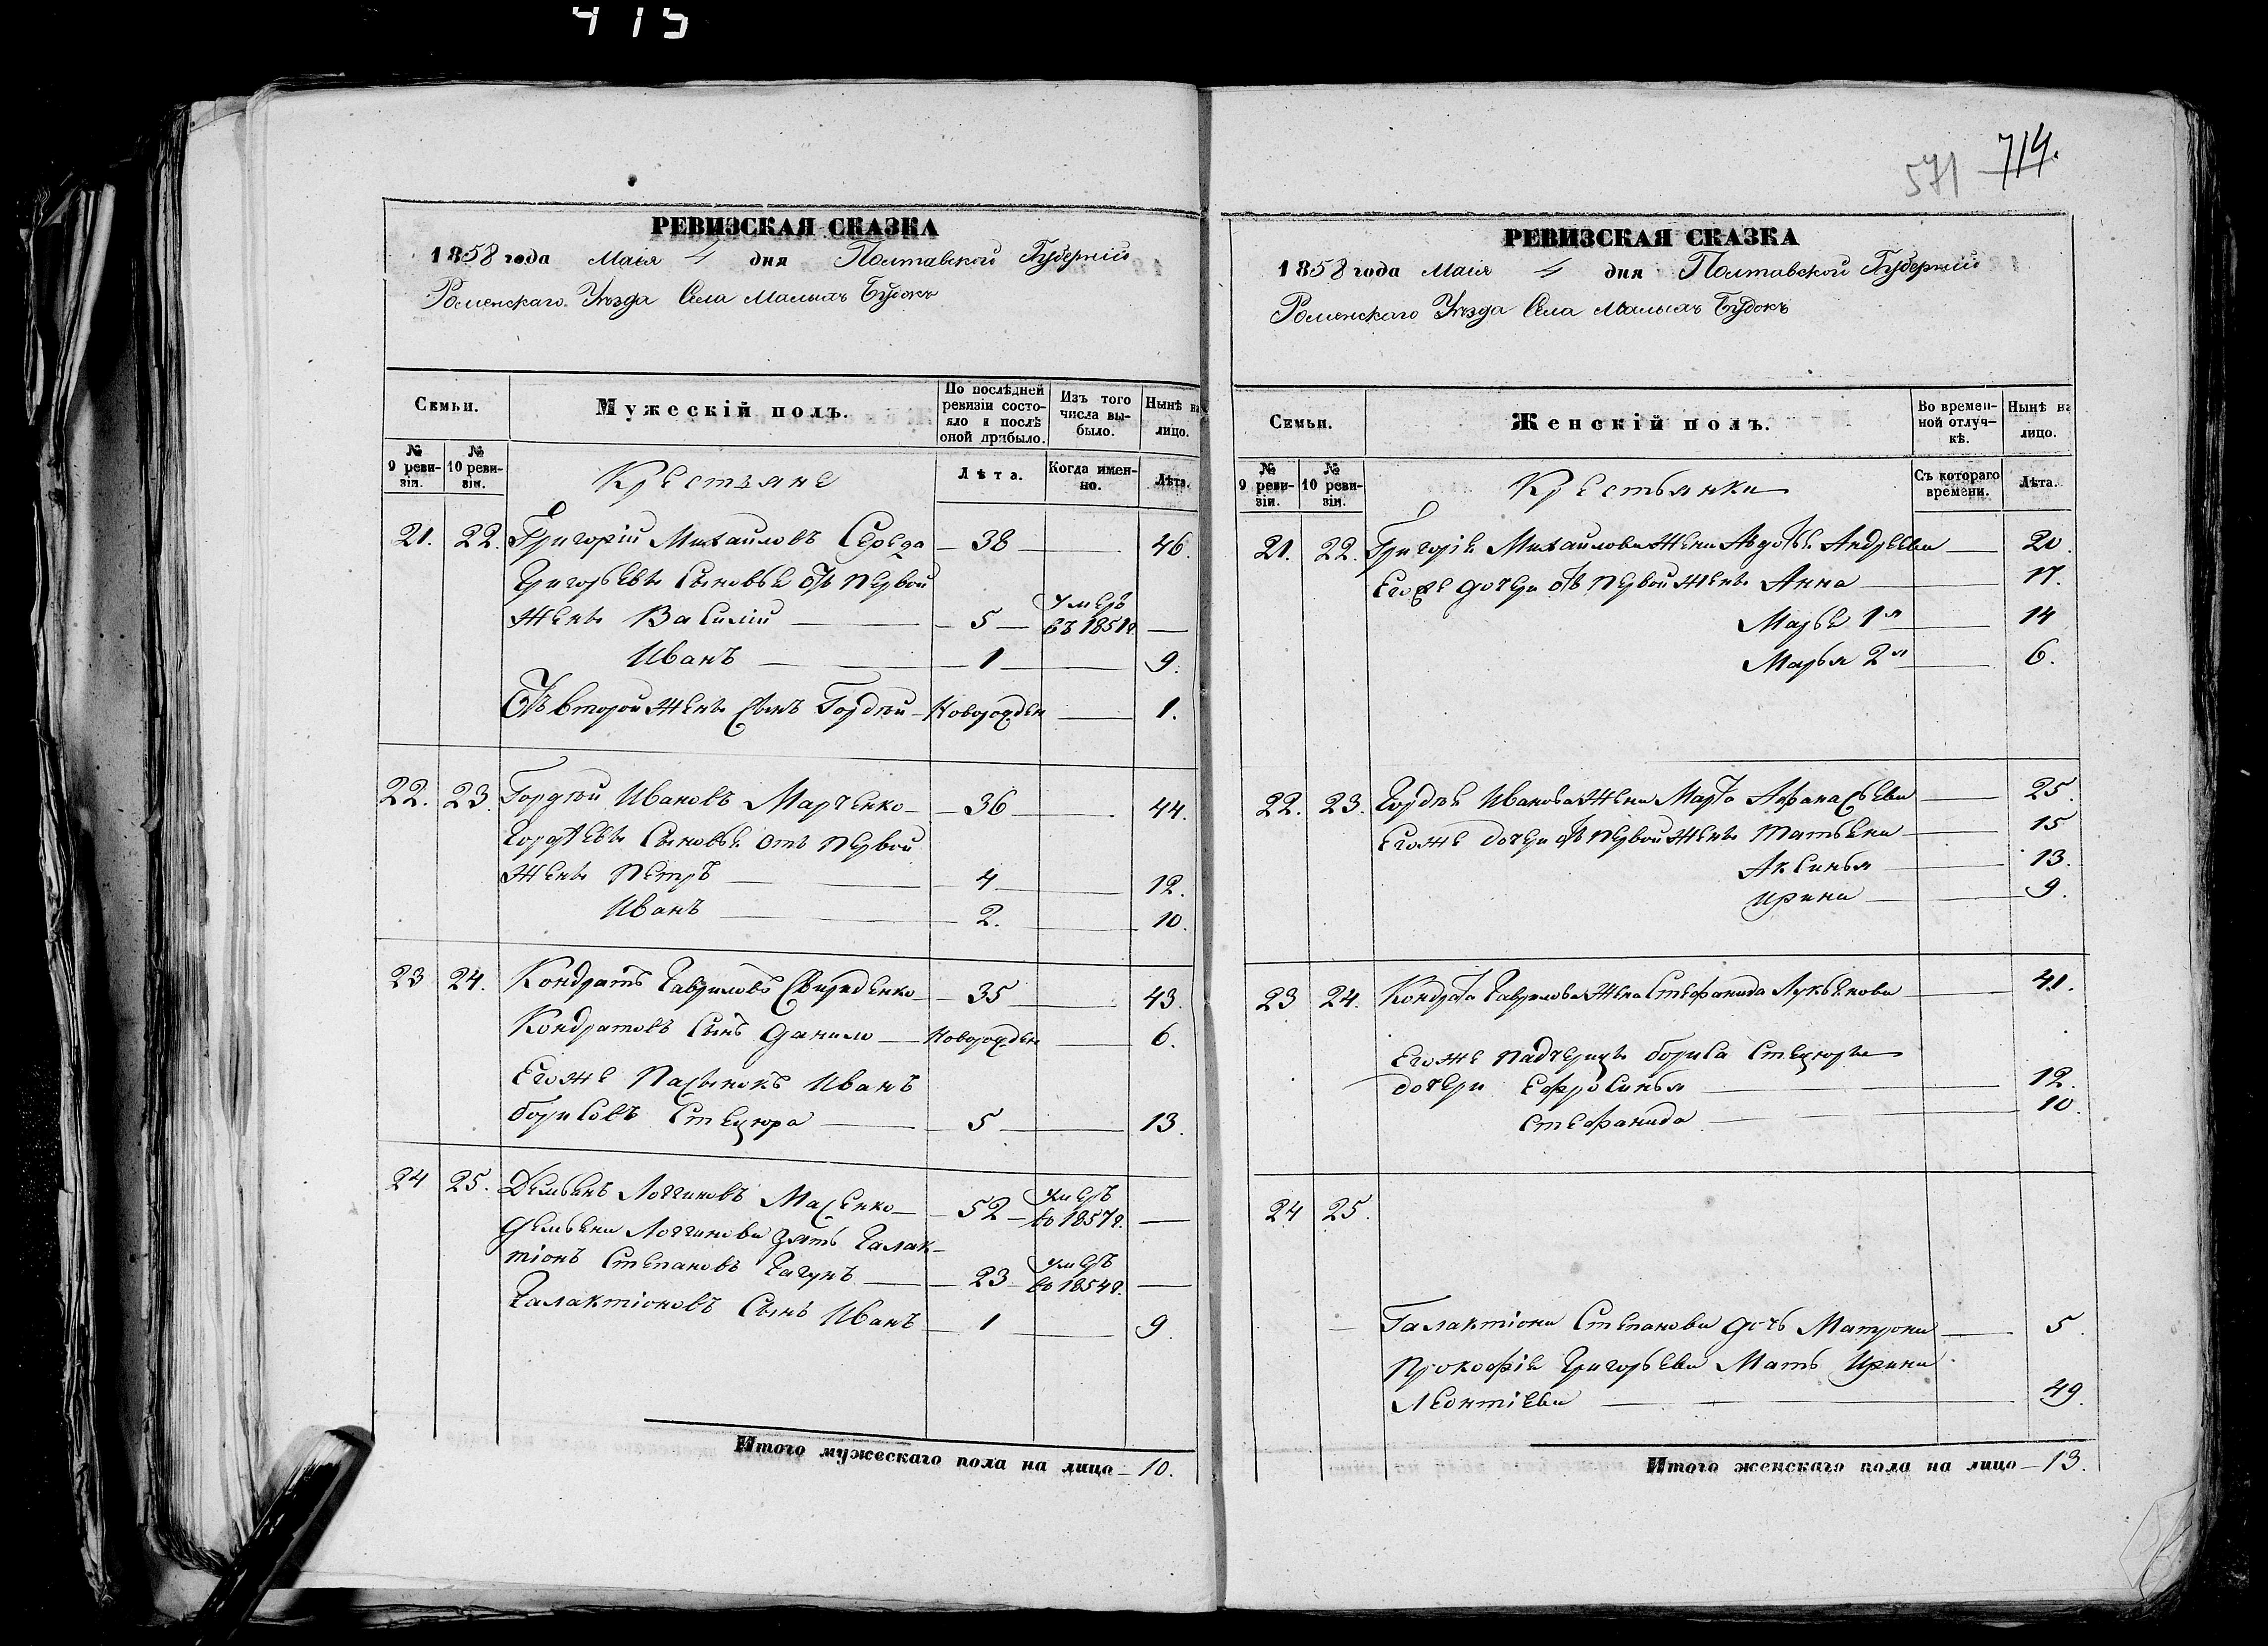 415
РЕВИЗСКАЯ СКАЗКА
1858 года Маія 4 дня Полтавской Губерніи
Роменскаго Уѣзда Села Малыхъ Будокъ
Семьи.
Мужескій полъ.
По послѣдней ревизіи состояло и послѣ оной прибыло.
Изъ того числа выбыло.
Нынѣ на лицо.
№ 9 ревизіи.
№ 10 ревизіи.
Крестьяне
Лѣта.
Когда именно.
Лѣта.
21. 22. Григорій Михайловъ Середа — 38 — 46.
Григорьевы Сыновья отъ первой
жены Василій — 5 — умеръ въ 1851г. —
Иванъ — 1 — 9.
Отъ второй жены Сынъ Гордѣй — Новорожден — 1.
22. 23. Гордѣй Ивановъ Марченко — 36 — 44.
Гордѣевы Сыновья отъ первой
жены Петръ — 4 — 12.
Иванъ — 2. — 10.
23 24. Кондратъ Гавриловъ Свириденко — 35 — 43.
Кондратовъ Сынъ Данило — Новорожден — 6.
Егоже Пасынокъ Иванъ
Борисовъ Стецюра — 5 — 13.
24 25. Демьянъ Логгиновъ Масенко — 52 — умеръ во 1857г. —
Демьяна Логгинова зять Галак-
тіонъ Степановъ Гагунъ — 23 умеръ во 1854г. —
Галактіоновъ Сынъ Иванъ — 1 — 9.
Итого мужескаго пола на лицо — 10.
571 714.
РЕВИЗСКАЯ СКАЗКА
1858 года Маія 4 дня Полтавской Губерніи
Роменскаго Уѣзда Села Малыхъ Будокъ
Семьи.
Женскій полъ.
Во временной отлучкѣ.
Нынѣ на лицо.
№ 9 ревизіи.
№ 10 ревизіи.
Крестьянки
Съ котораго времени.
Лѣта.
21. 22. Григорія Михайлова жена Авдотья Андреева — 20.
Егоже дочери отъ первой жены Анна — 17.
Марья 1я — 14
Марья 2я — 6.
22. 23. Гордѣя Иванова жена Марфа Афанасьева — 25.
Егоже дочери отъ первой жены Татьяна — 15
Аксинья — 13.
Ирина — 9.
23 24. Кондрата Гаврилова жена Стефанида Лукьянова — 41.
Егоже падчерицы Бориса Стецюры
дочери Ефросинья — 12.
Стефанида — 10.
24 25.
Галактіона Степанова дочь Матрона — 5.
Прокофія Григорьева Мать Ирина
Леонтіева — 49.
Итого женскаго пола на лицо — 13.